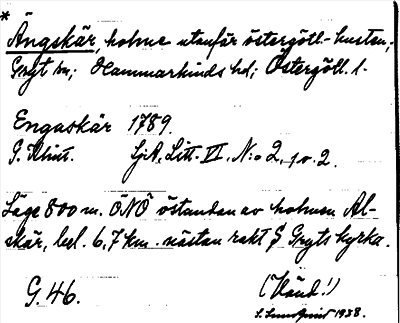 *
Ängskär, holme utanför östergötl.-kusten;
Gryt sn; Hammarkinds hd; Östergötl. l.
Engaskär 1789.
G. Klint. SjA, Litt. VI, N:o 2, 1 o. 2.
Läge 800 m. ÖNÖ östanden av holmen Al-
skär, bel. 6,7 km. nästan rakt S Gryts kyrka.
G. 46. (Händ!)
S. Lundqvist 1938.